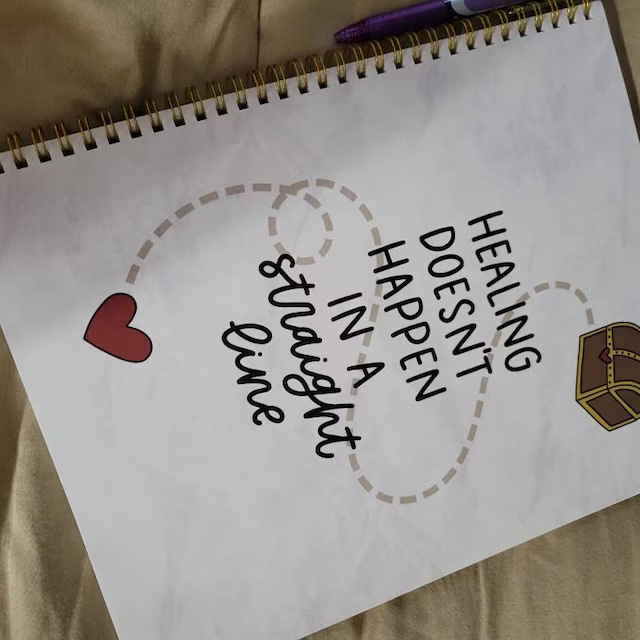 HEALING
DOESN'T
HAPPEN
IN A
straight
line